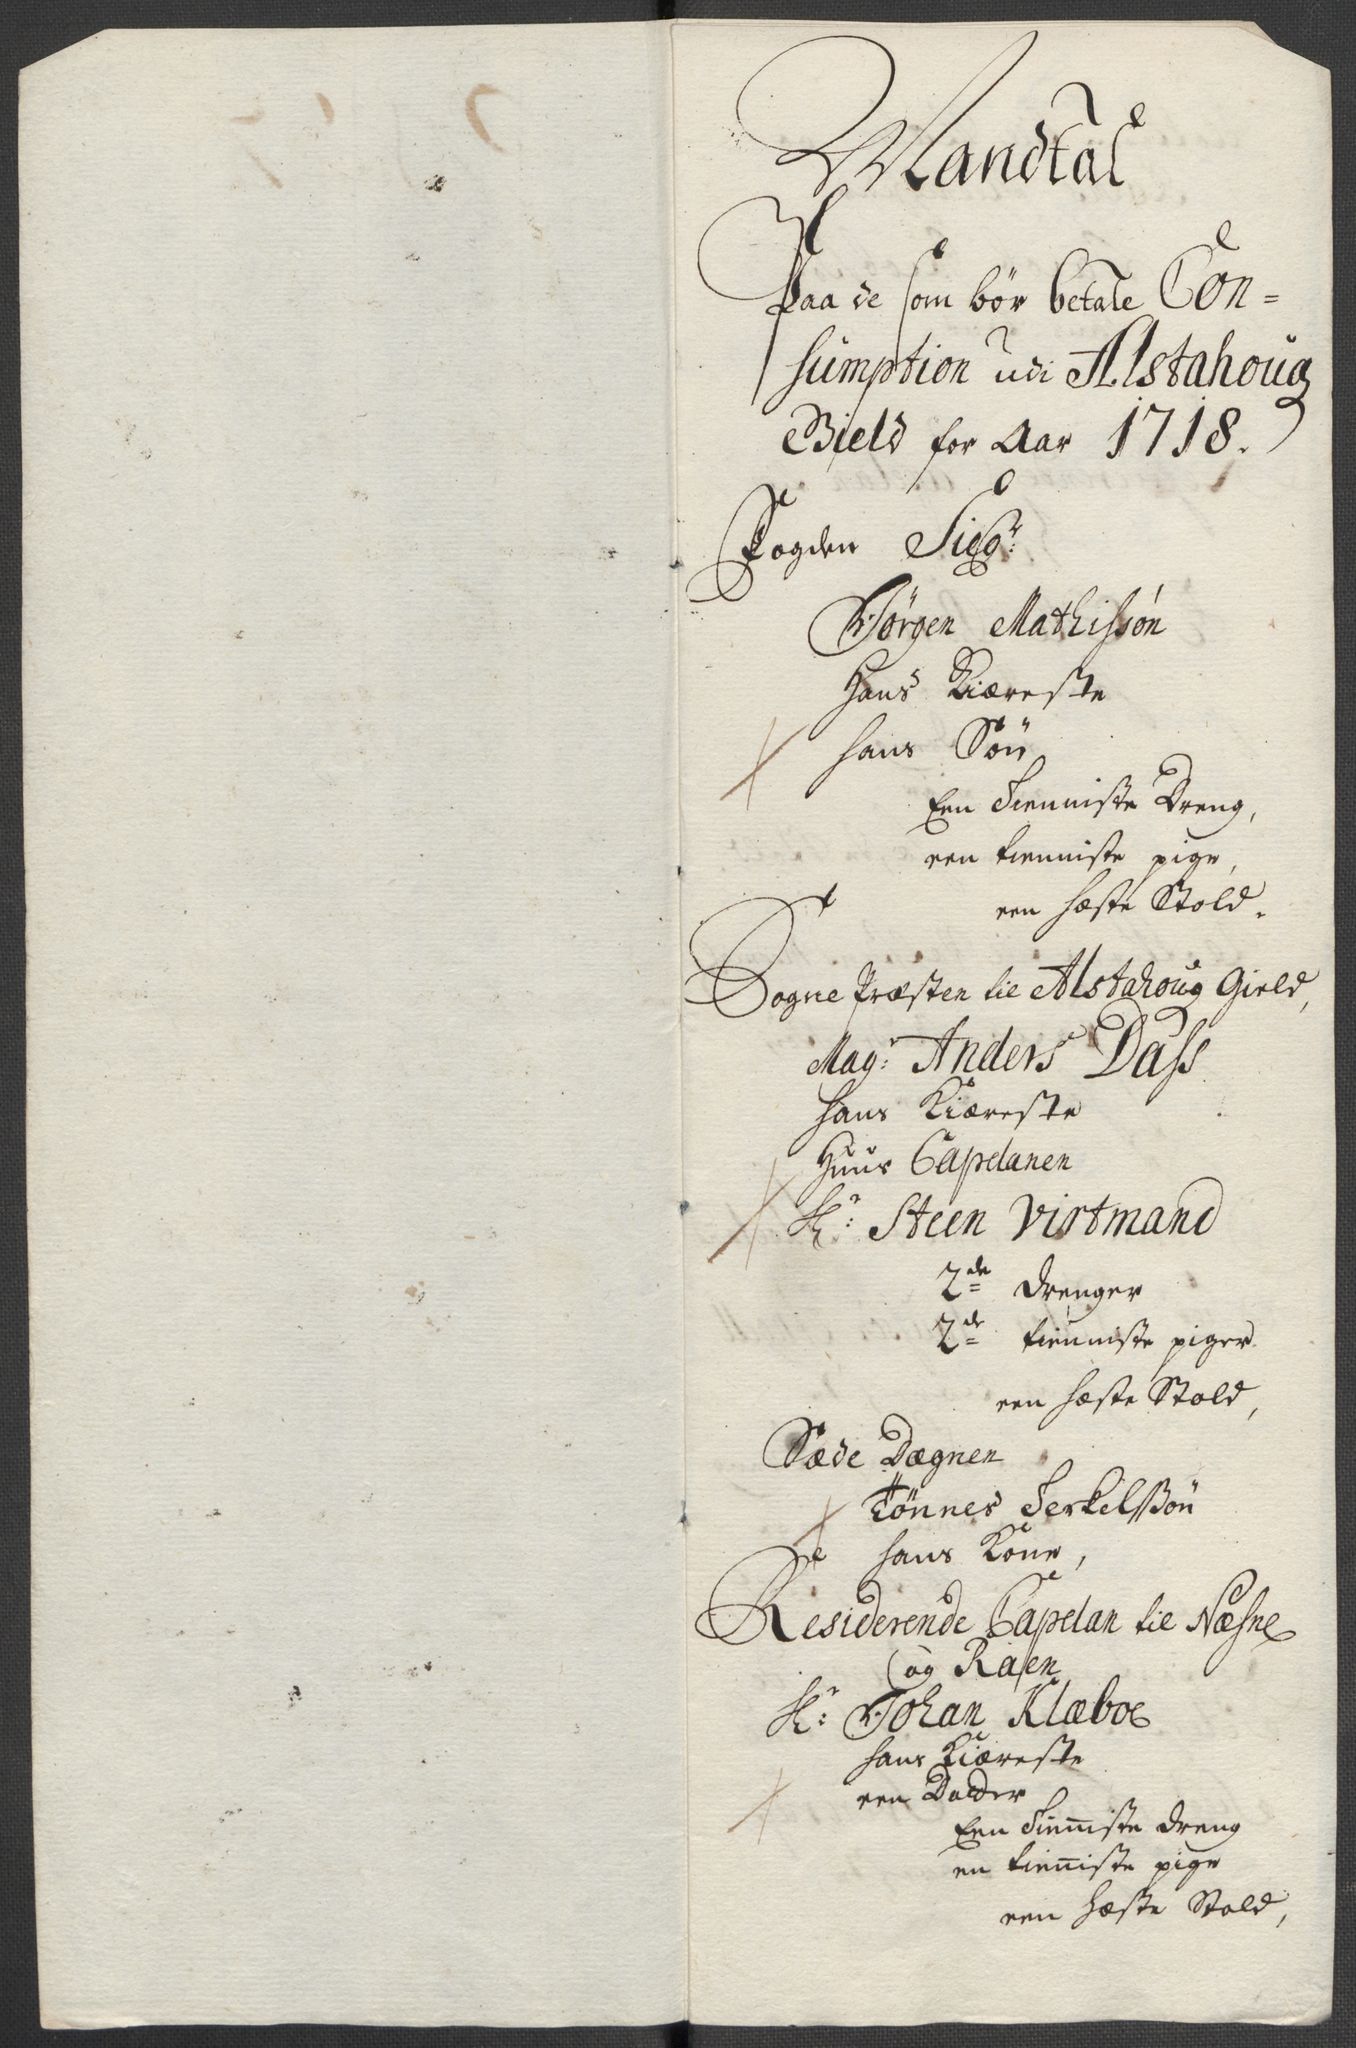 Mandtal
Paa de som bör betale Con=
sumption udi Alstahoug
Gield for Aar 1718.
Fogden Sigr:
Jörgen Mathissøn
Hans Kiæreste
hans Søn
Een Tienniste Dreng,
een tienniste pige,
een hæste Stold.
Sogne Præsten til Alstahoug Gield,
Magr: Anders Dass
hans Kiæreste
Huus Capelanen
Hr: Steen Virtmand
2de drenger
2de tienniste piger
een hæste Stold,
Sæde Dægnen
Tönnes Terkelssøn
hans Kone,
Residerende Capelan til Næsne
og Raen
Hr: Johan Klæboe
hans Kiæreste
een Datter
Een Tienniste dreng
en tienniste pige
een hæste Stold,